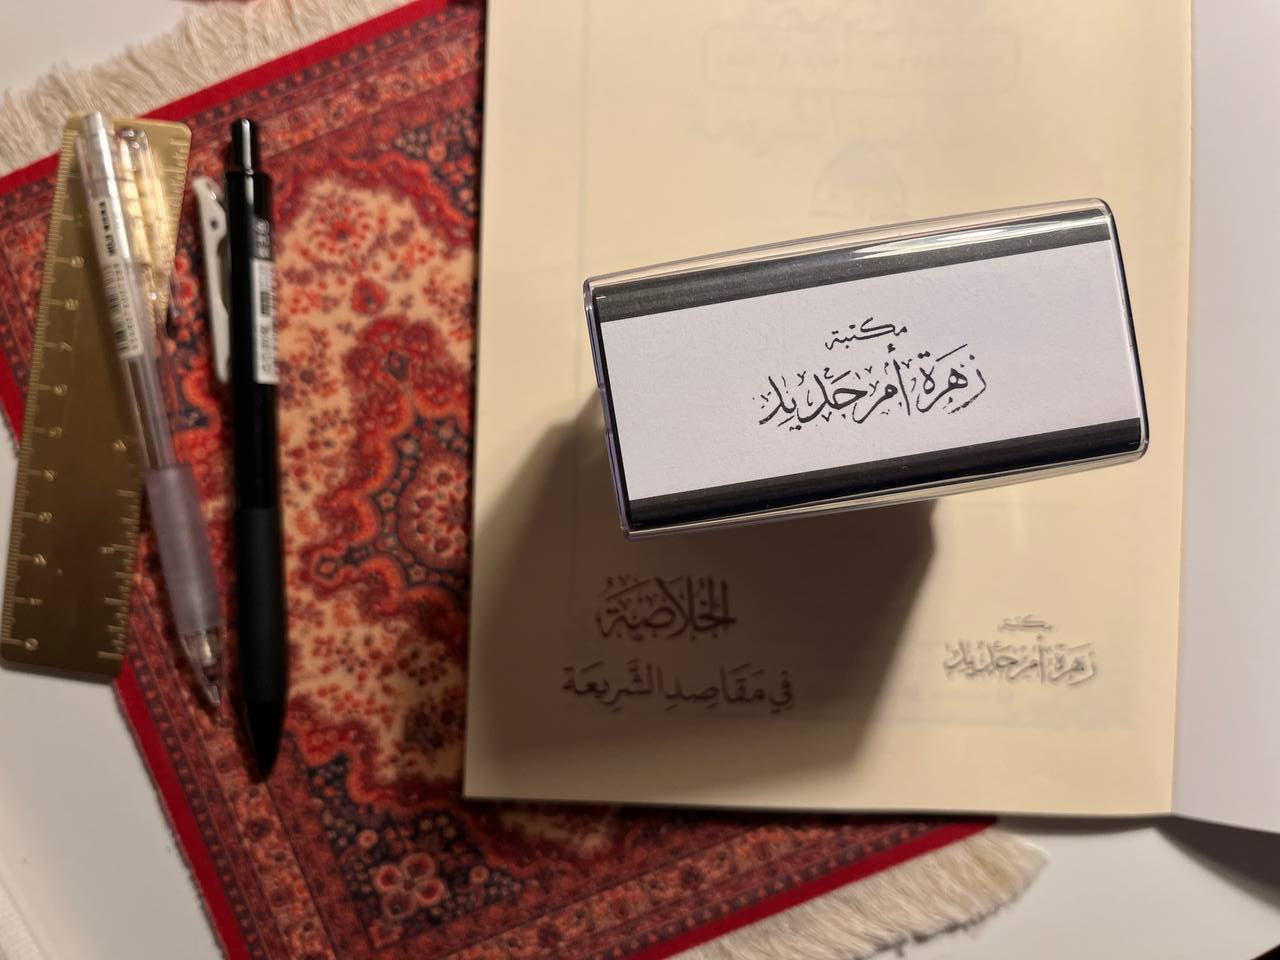 مكتبة
زهرة أم حديد
الخُلَاصَةُ
فِي مَقَاصِدِ الشَّرِيعَة
مكتبة
زهرة أم حديد